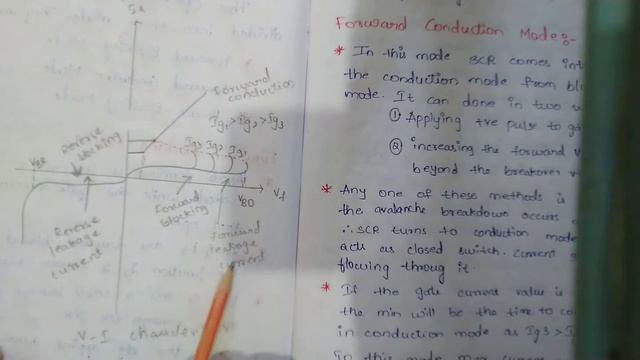 Ia
Forward
conduction
Ig1>ig2>ig3
Ig3 Ig2 Ig1
Reverse
blocking
VBR
VBO
Vf
Forward
blocking
Reverse
leakage
current
Forward
leakage
current
V-I
Forward Conduction Mode:-
* In this mode SCR comes
the conduction mode from
mode. It can done in two
① Applying +ve pulse to
② increasing the forward
beyond the breakover
* Any one of these methods is
the avalanche breakdown occurs
∴ SCR turns to conduction mode
acts as closed switch. current
flowing throug it.
* If the gate current value is
the min will be the time to
in conduction mode as Ig3>
In this mode